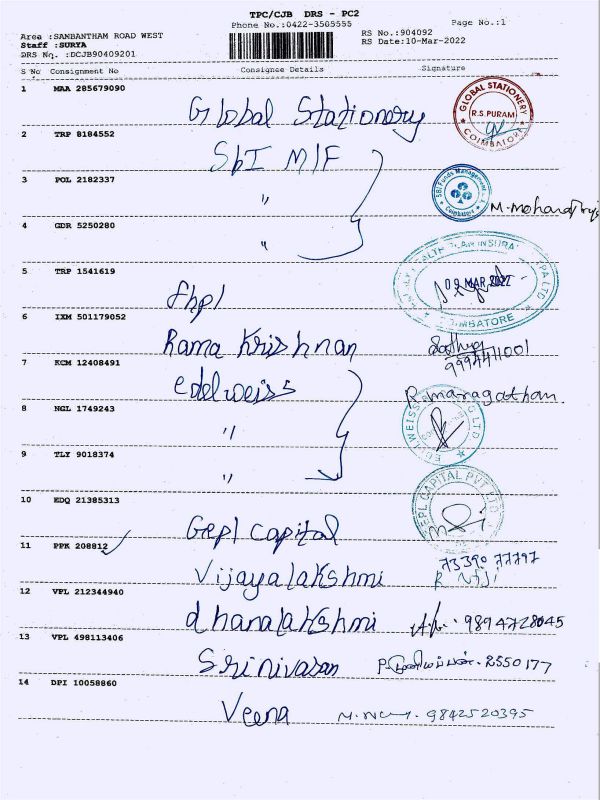 TPC/CJB DRS - PC2
Phone No.:0422-3505555
Page No.:1
Area :SANBANTHAM ROAD WEST
RS No.:904092
Staff :SURYA
RS Date:10-Mar-2022
DRS No. :DCJB90409201
S No Consignment No Consignee Details Signature
1 MAA 285679090
Global Stationery
GLOBAL STATIONERY
R.S.PURAM
COIMBATORE
2 TRP 8184552
SbI M/F
3 POL 2182337
"
SBI Funds Management
Coimbatore
4 GDR 5250280
"
5 TRP 1541619
fhpl
09 MAR 2022
COIMBATORE
6 IXM 501179052
Rama Krishnan
9994471001
7 KCM 12408491
edelweiss
R. maragathan.
8 NGL 1749243
"
9 TLY 9018374
"
10 EDQ 21385313
Gepl Capital
GEPL CAPITAL PVT LTD
11 PPK 208812
Vijayalakshmi
73390 77797
12 VPL 212344940
dhanalakshmi
9894728045
13 VPL 498113406
Srinivasan
2550177
14 DPI 10058860
Veena
9842520395